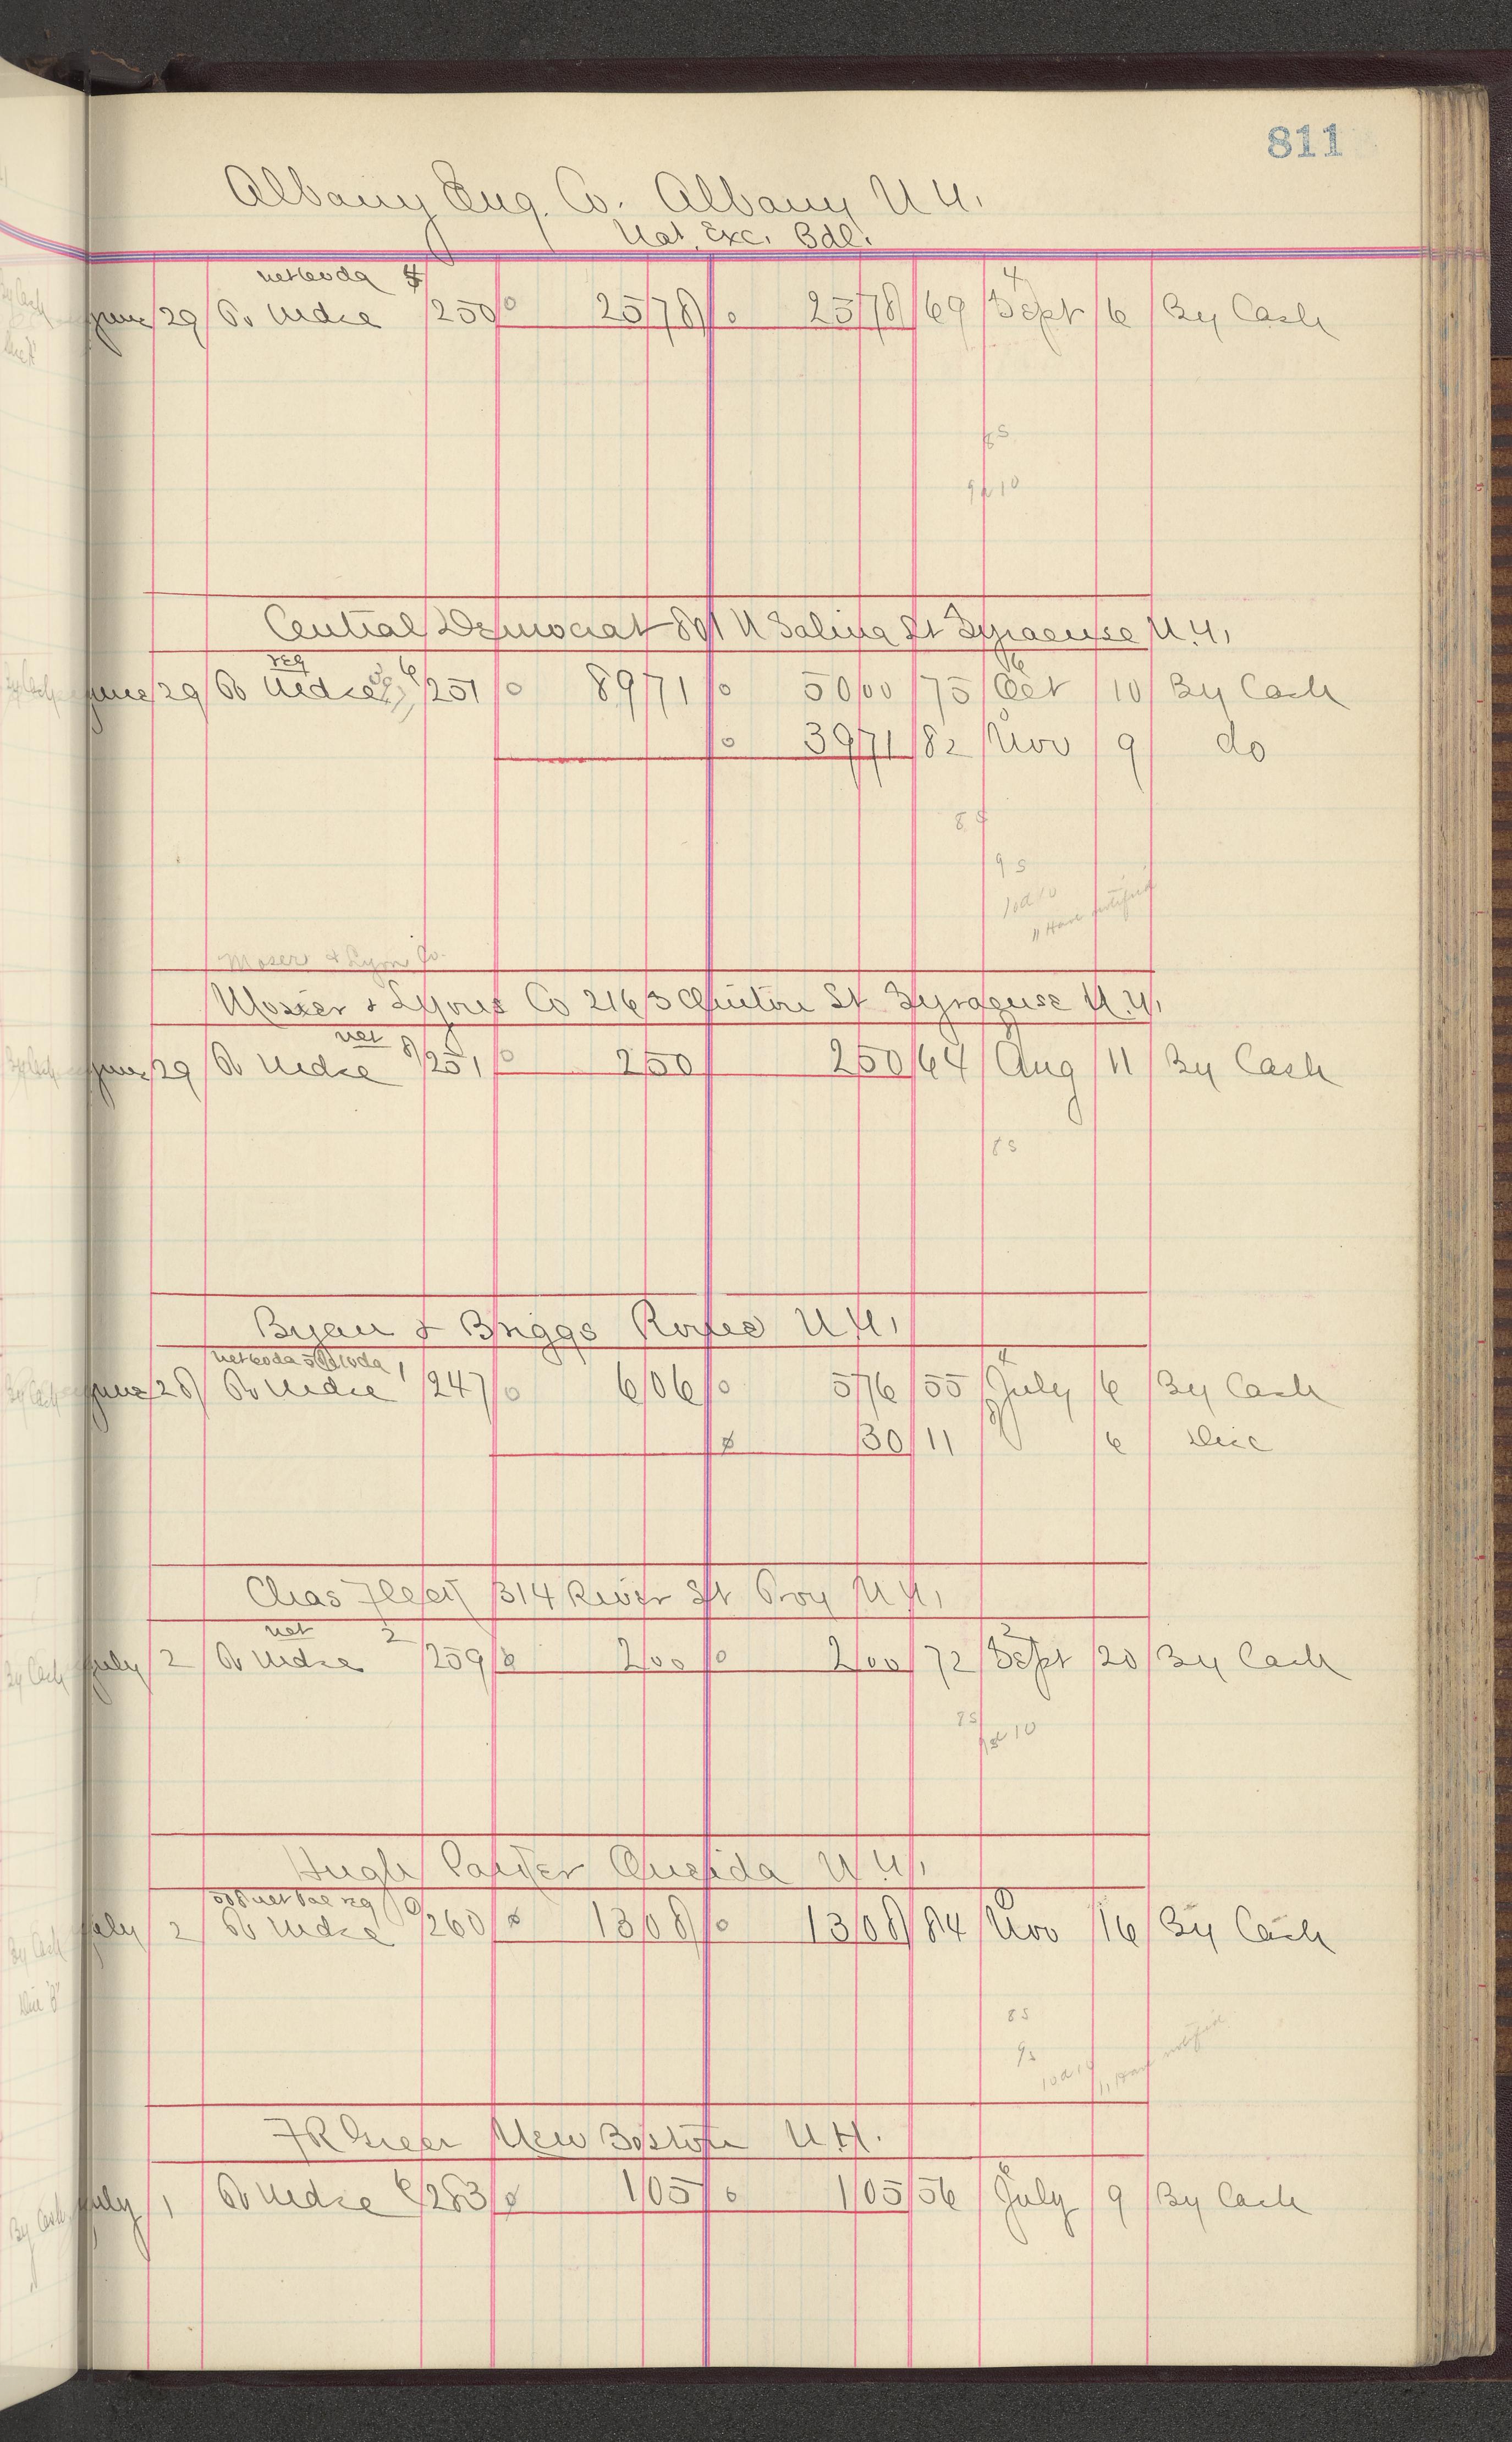 811
Albany Eng. Co. Albany N.Y.
Nat. Exc. Bdl.
net 60 da 4 4
June 29 To Mdse 250 25 78 25 78 69 Sept 6 By Cash
8 s
9 d 10
Central Democrat 801 N Salina St Syracuse N.Y.
reg 6 6
June 29 To Mdse 251 89 71 50 00 75 Oct 10 By Cash
39 71 82 Nov 9 do
8 s
9 s
10 d 10
11 Have notified
Moser & Lyon Co.
Moser & Lyons Co 216 S Clinton St Syracuse N.Y.
net 8
June 29 To Mdse 251 2 50 2 50 64 Aug 11 By Cash
8 s
Byan & Briggs Rome N.Y.
net 60 da 5% 10 da 1 4
June 28 To Mdse 247 6 06 5 76 55 July 6 By Cash
30 11 6 Disc
Chas Fleet 314 River St Troy N.Y.
net 2 2
July 2 To Mdse 259 2 00 2 00 72 Sept 20 By Cash
8 s
9 d 10
Hugh Parker Oneida N.Y.
net bal reg
July 2 To Mdse 260 13 08 13 08 84 Nov 16 By Cash
8 s
9 s
10 d 10 11 Have notified
F R Greer New Boston N.H.
July 1 To Mdse 6 283 1 05 1 05 56 July 9 By Cash